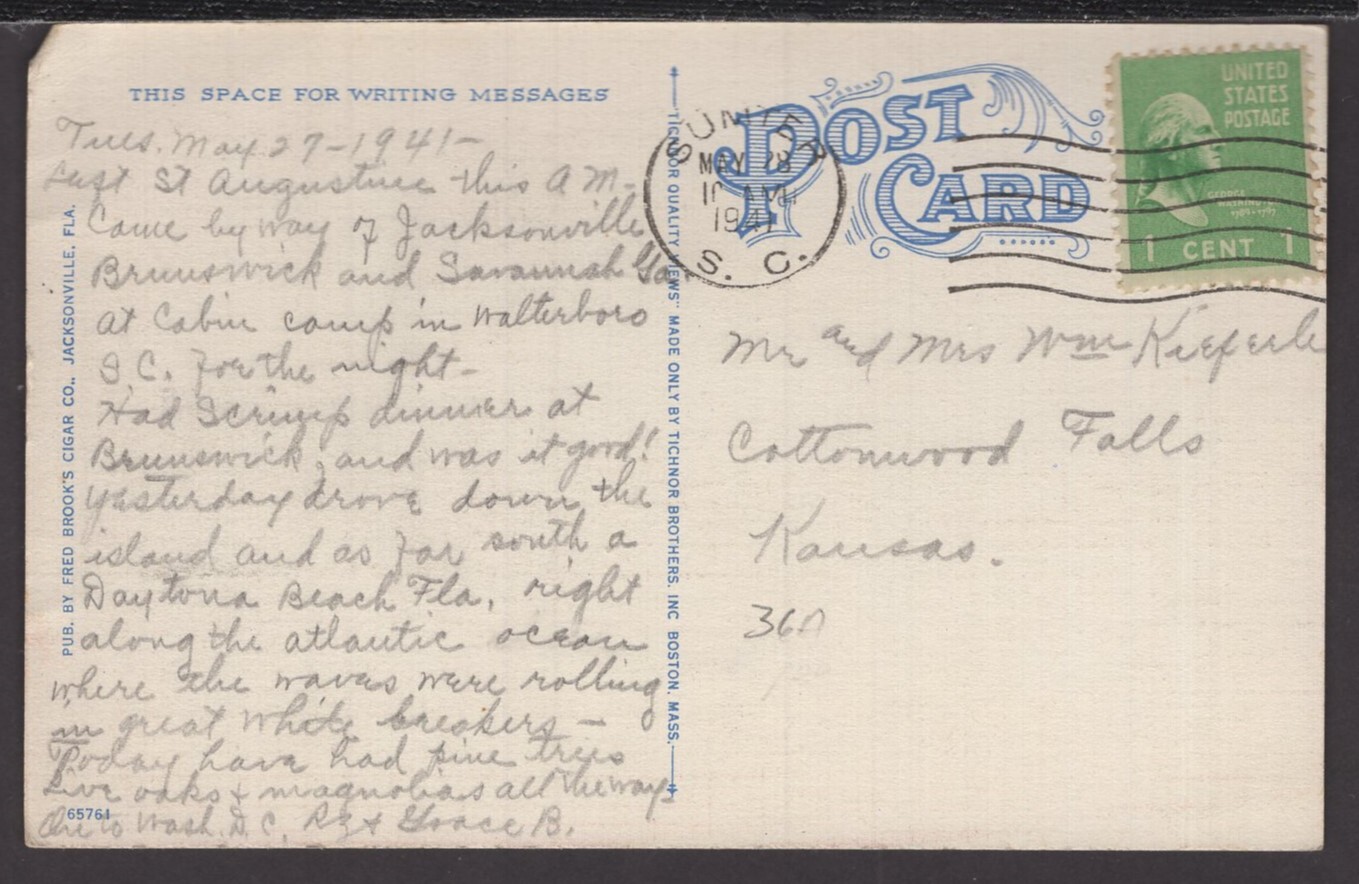 THIS SPACE FOR WRITING MESSAGES
Tues. May 27-1941-
Left St Augustine this A M-
Came by way of Jacksonville
Brunswick and Savannah Ga-
at Cabin camp in Walterboro
S.C. for the night-
Had Scrimp dinner at
Brunswick, and was it good!
Yesterday drove down the
island and as far south a
Daytona Beach Fla, right
along the atlantic ocean
where the waves were rolling
in great white breakers -
Today have had pine trees
Live oaks & magnolias all the way
to Wash. D.C. & Grace B.
65761
PUB. BY FRED BROOK'S CIGAR CO., JACKSONVILLE, FLA.
"TICHNOR QUALITY VIEWS" MADE ONLY BY TICHNOR BROTHERS, INC BOSTON, MASS.
POST
CARD
SUMTER
MAY 28
1941
S. C.
UNITED
STATES
POSTAGE
GEORGE
WASHINGTON
1 CENT 1
Mr and Mrs Wm Kieferle
Cottonwood Falls
Kansas.